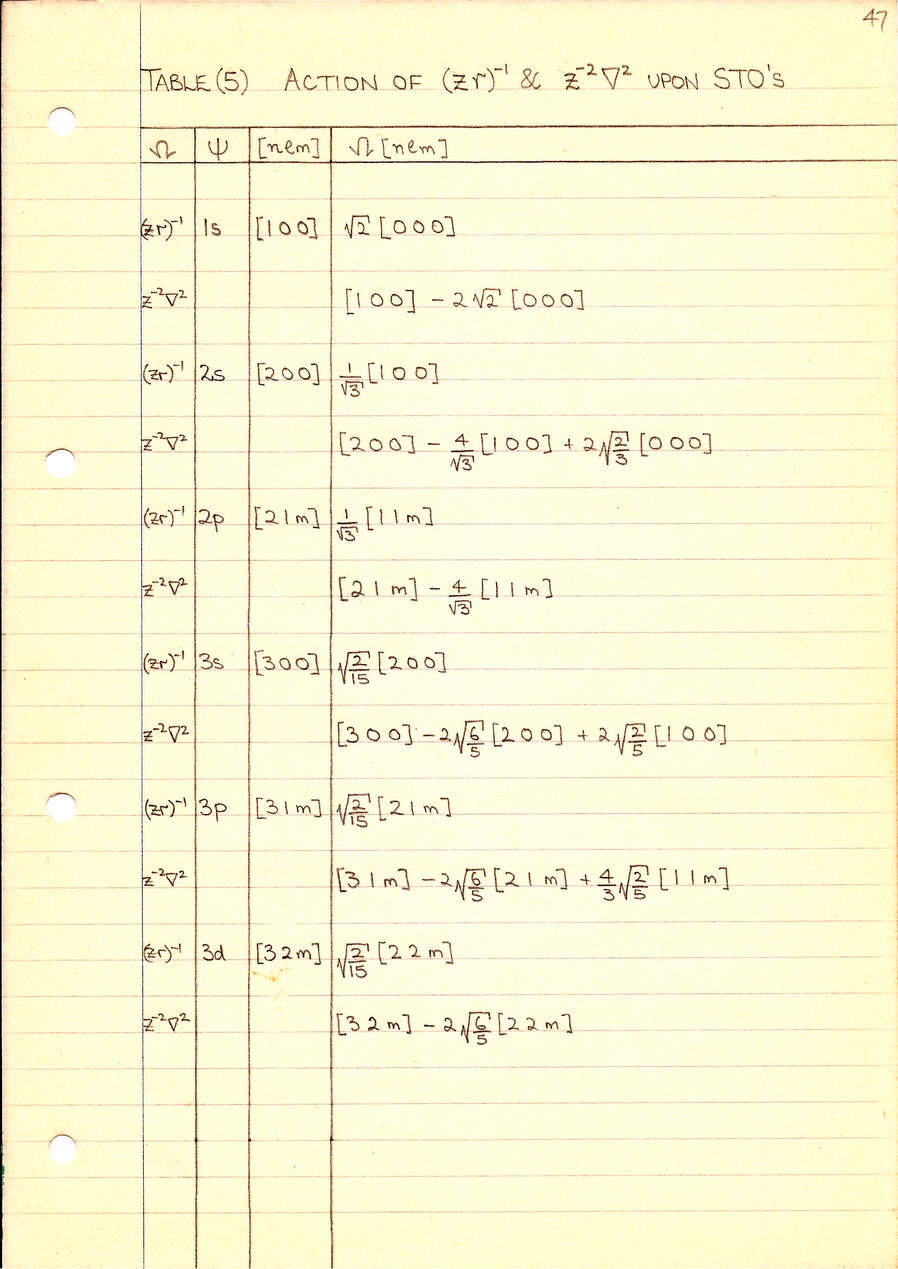 47
TABLE (5) ACTION OF (zr)⁻¹ & z⁻²∇² UPON STO'S
Ω ψ [nlm] Ω [nlm]
(zr)⁻¹ 1s [100] √2 [000]
z⁻²∇² [100] - 2√2 [000]
(zr)⁻¹ 2s [200] 1/√3 [100]
z⁻²∇² [200] - 4/√3 [100] + 2√(2/3) [000]
(zr)⁻¹ 2p [21m] 1/√3 [11m]
z⁻²∇² [21m] - 4/√3 [11m]
(zr)⁻¹ 3s [300] √(2/15) [200]
z⁻²∇² [300] - 2√(6/5) [200] + 2√(2/5) [100]
(zr)⁻¹ 3p [31m] √(2/15) [21m]
z⁻²∇² [31m] - 2√(6/5) [21m] + 4/3 √(2/5) [11m]
(zr)⁻¹ 3d [32m] √(2/15) [22m]
z⁻²∇² [32m] - 2√(6/5) [22m]